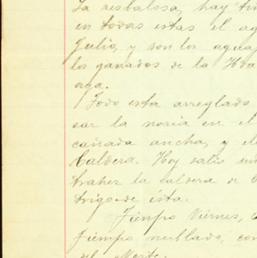 La resbalosa, hay tin
en todas estas el ag
Julio, y son los aguaj
los ganados de la Hda
aga.
Todo esta arreglado
sar la noria en el
cañada ancha, y el
Caldera. Hoy salió un
traher la caldera de
trigo de ésta.
Tiempo Viernes,
Tiempo nublado, con
del Norte.